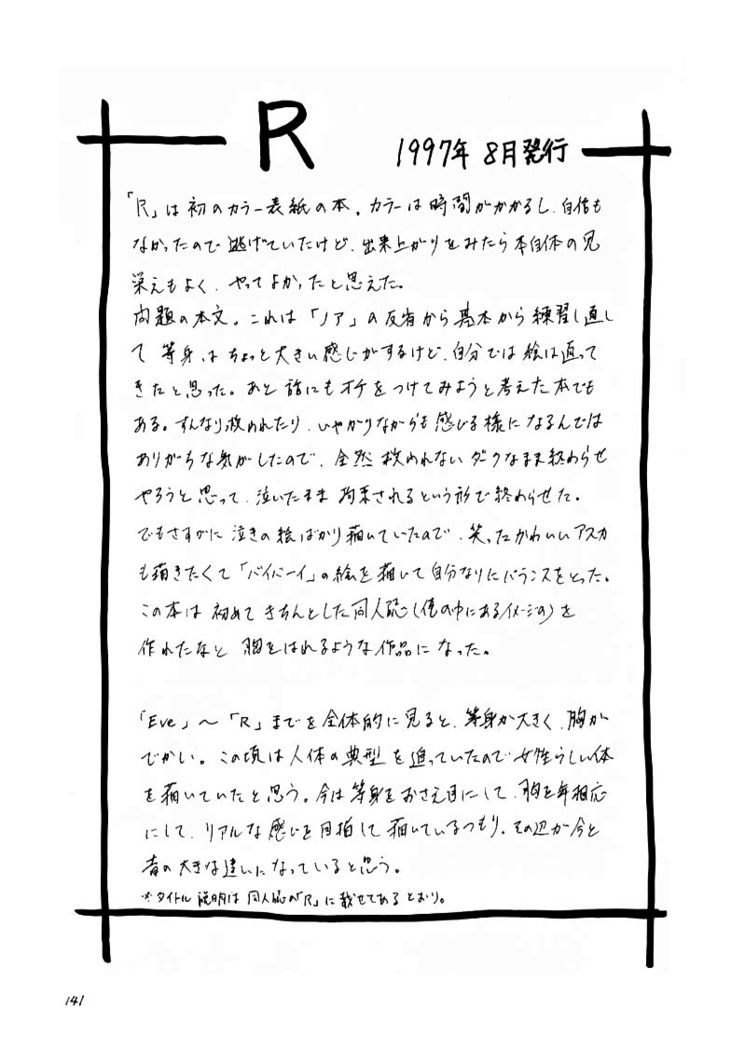 R
1997年 8月発行
「R」は初のカラー表紙の本。カラーは時間がかかるし、自信も
なかったので逃げていたけど、出来上がりをみたら本自体の見
栄えもよく、やってよかったと思えた。
問題の本文。これは「ノア」の反省から基本から練習し直し
て 等身はちょっと大きい感じがするけど、自分では絵は直って
きたと思った。あと 話にもオチをつけてみようと考えた本でも
ある。すんなり救われたり、いやがりながらも感じる様になるんでは
ありがちな気がしたので、全然救われないダークなまま終わらせ
やろうと思って、泣いたまま拘束されるという形で終わらせた。
でもさすがに泣きの絵ばかり描いていたので、笑ったかわいいアスカ
も描きたくて「バイバーイ」の絵を描いて自分なりにバランスをとった。
この本は初めてきちんとした同人誌(僕の中にあるイメージの)を
作れたなと 胸をはれるような作品になった。
「Eve」〜「R」までを全体的に見ると、等身が大きく、胸が
でかい。この頃は人体の典型を追っていたので女性らしい体
を描いていたと思う。今は等身をおさえ目にして、胸を年相応
にして、リアルな感じを目指して描いているつもり。その辺が今と
昔の大きな違いになっていると思う。
※タイトル説明は同人誌の「R」に載せてあるとおり。
141